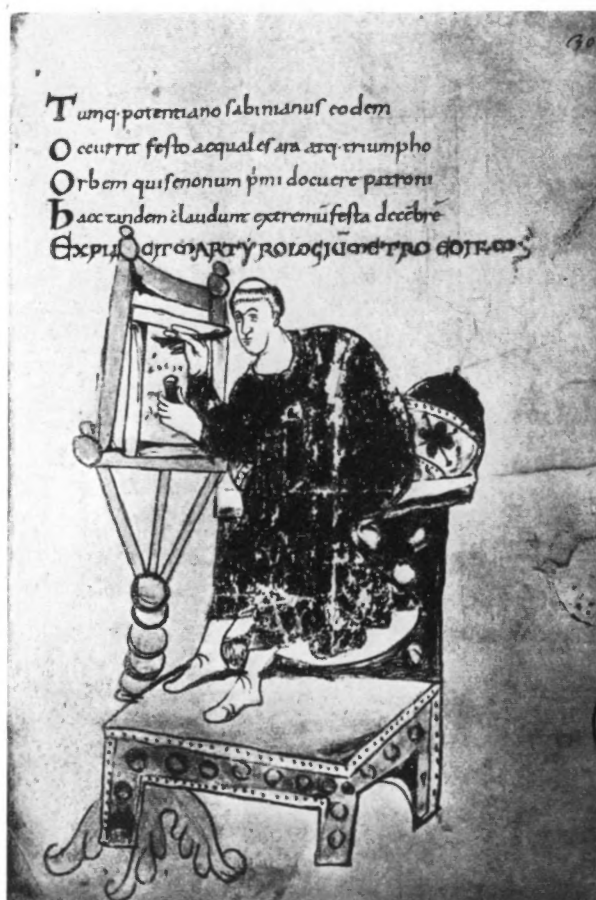 Tumq· potentiano sabinianus eodem
Occurrit festo aequales ara atq· triumpho
Orbem qui senonum p̄mi docuere patroni
haec tandem claudunt extremū festa decēbrē
EXPLICIT MARTYROLOGIŪ METRO EDITUM
30